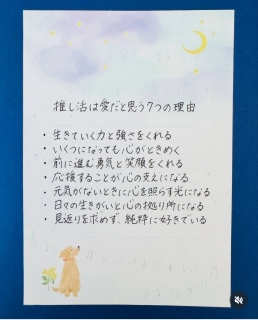 推し活は愛だと思う7つの理由
・生きていく力と強さをくれる
・いくつになっても心がときめく
・前に進む勇気と笑顔をくれる
・応援することが心の支えになる
・元気がないときに心を照らす光になる
・日々の生きがいと心の拠り所になる
・見返りを求めず、純粋に好きでいる